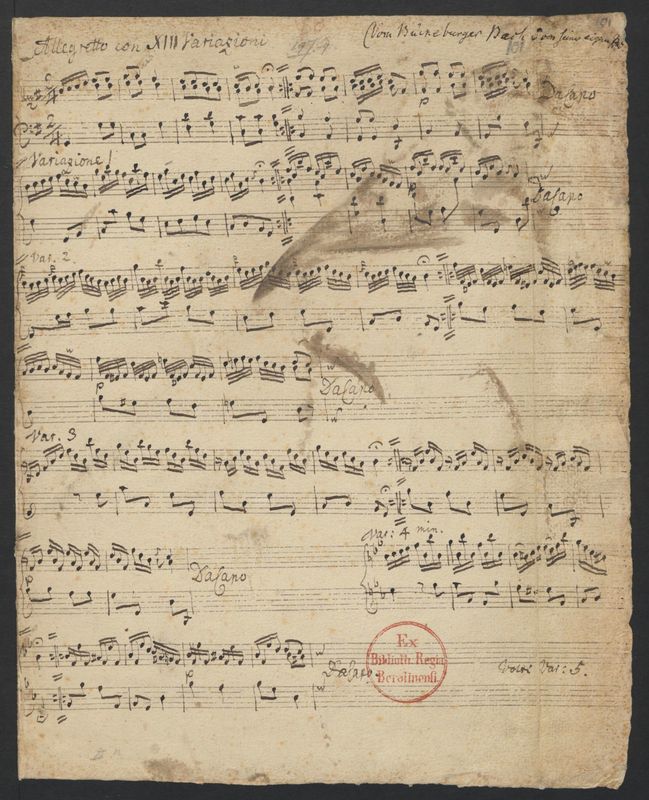 Allegretto con XIII Variazioni
(Vom Bückeburger Bach
101
101
DaCapo
Variazione 1
DaCapo
Var. 2.
DaCapo
Var. 3
Var: 4 min.
DaCapo
Ex
Biblioth. Regia
Berolinensi.
DaCapo
Volti Var: 5.